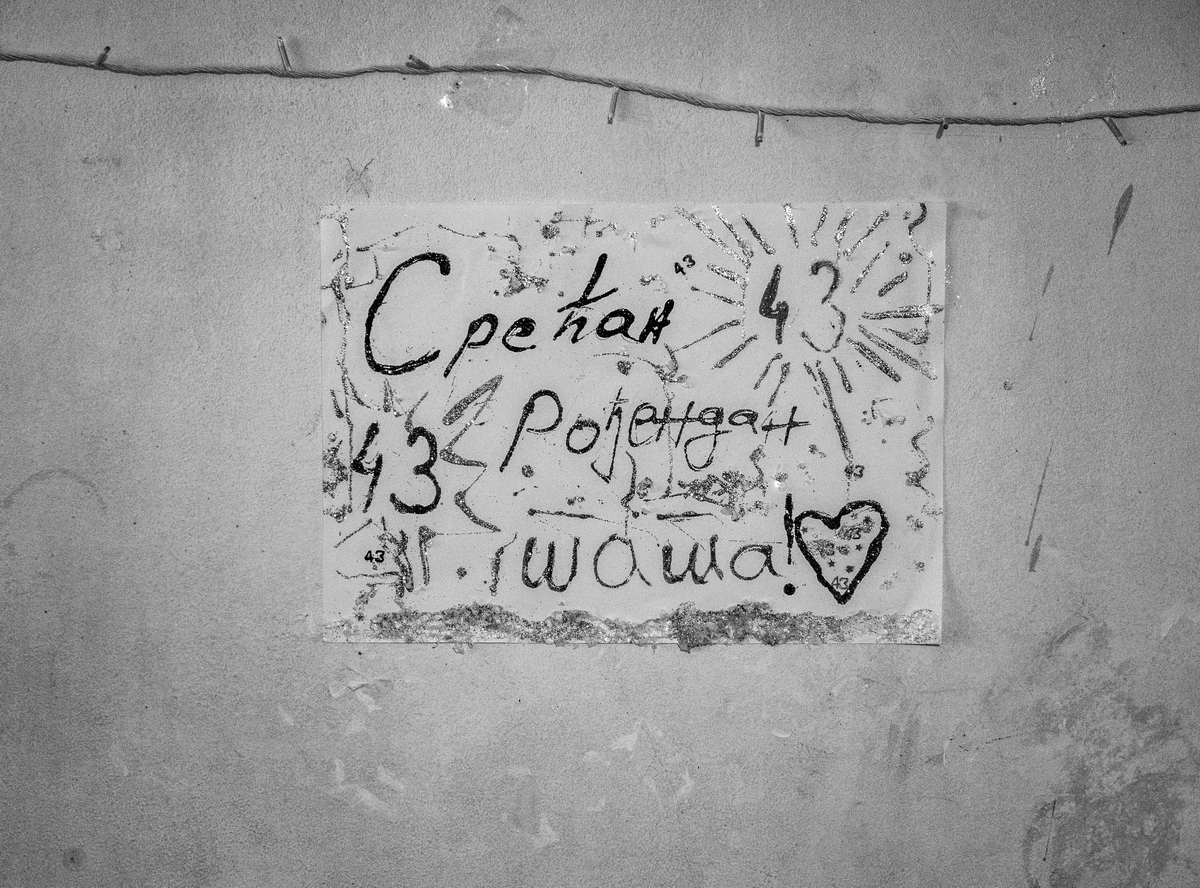 Срећан
43
43
Рођендан
43
43
шаша!
43
43
43